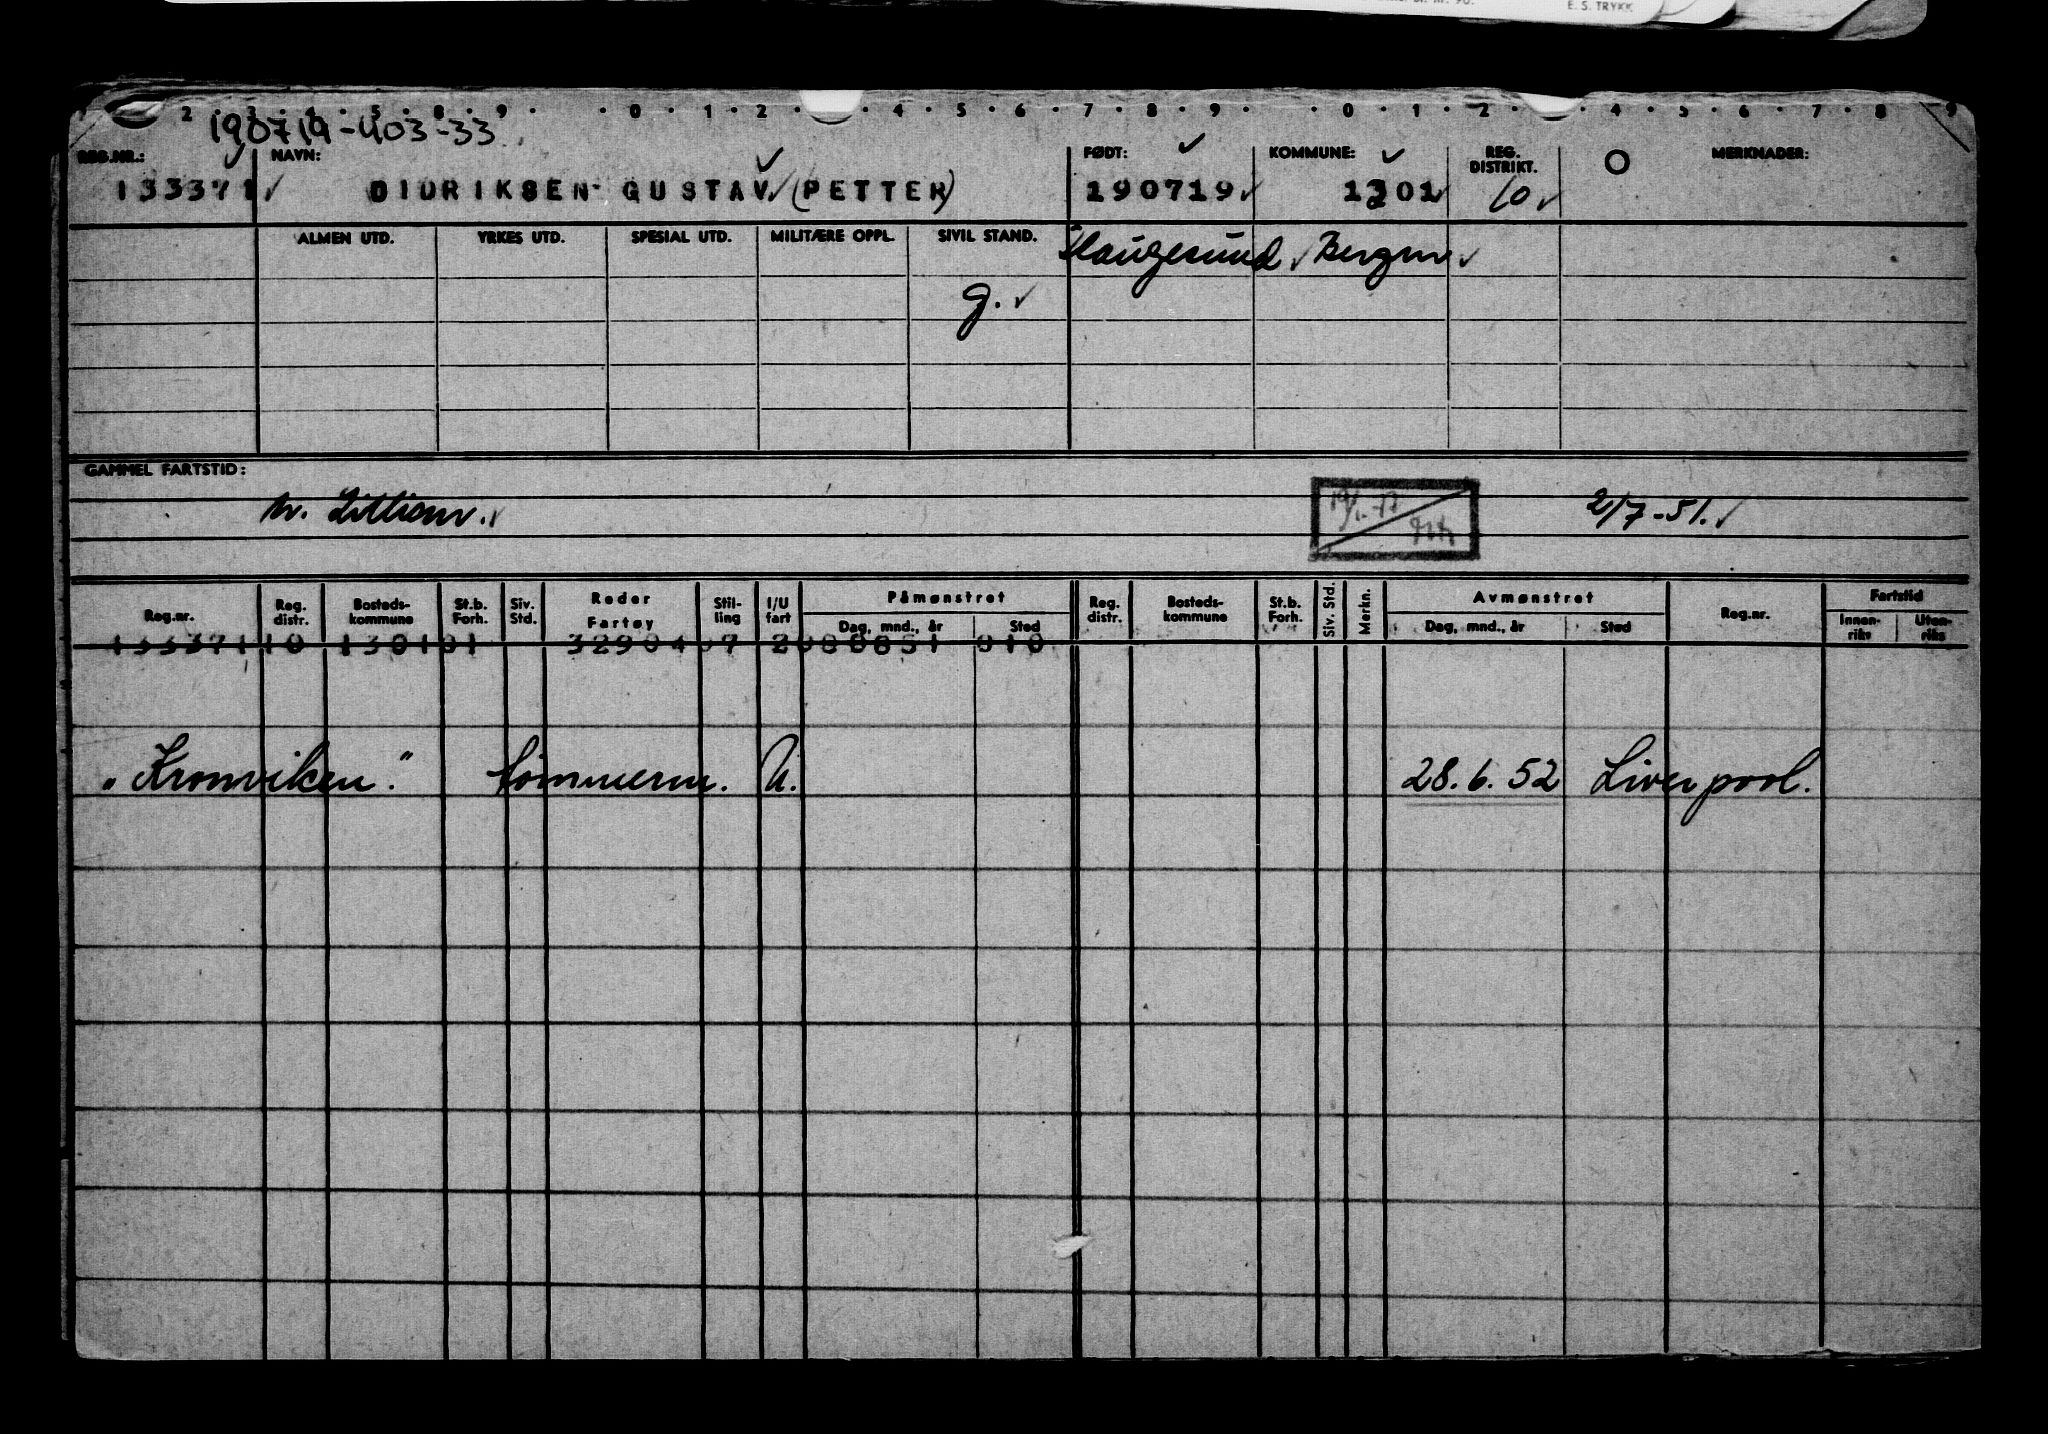 E. S. TRYKK
2 · 3 · 4 · 5 · 8 · 9 · · 0 · 1 · 2 · · 4 · 5 · 6 · 7 · 8 · 9 · · 0 · 1 · 2 · · 4 · 5 · 6 · 7 · 8 · 9
190719-403-33
REG.NR.: NAVN: FØDT: KOMMUNE: REG. DISTRIKT. MERKNADER:
133371 DIDRIKSEN GUSTAV (PETTER) 190719 1301 10
ALMEN UTD. YRKES UTD. SPESIAL UTD. MILITÆRE OPPL. SIVIL STAND. Haugesund Bergen
g.
GAMMEL FARTSTID:
2/7-51.
Reg.nr. Reg. distr. Bosteds- kommune St.b. Forh. Siv. Std. Reder Fartøy Stil- ling I/U fart Påmønstret Dag, mnd., år Sted Reg. distr. Bosteds- kommune St.b. Forh. Siv. Std. Merkn. Avmønstret Dag, mnd., år Sted Reg.nr. Fartstid Innen- riks Uten- riks
133371 10 1301 01 32904 2 310
"Kronviken." tømmerm. U. 28.6.52 Liverpool.